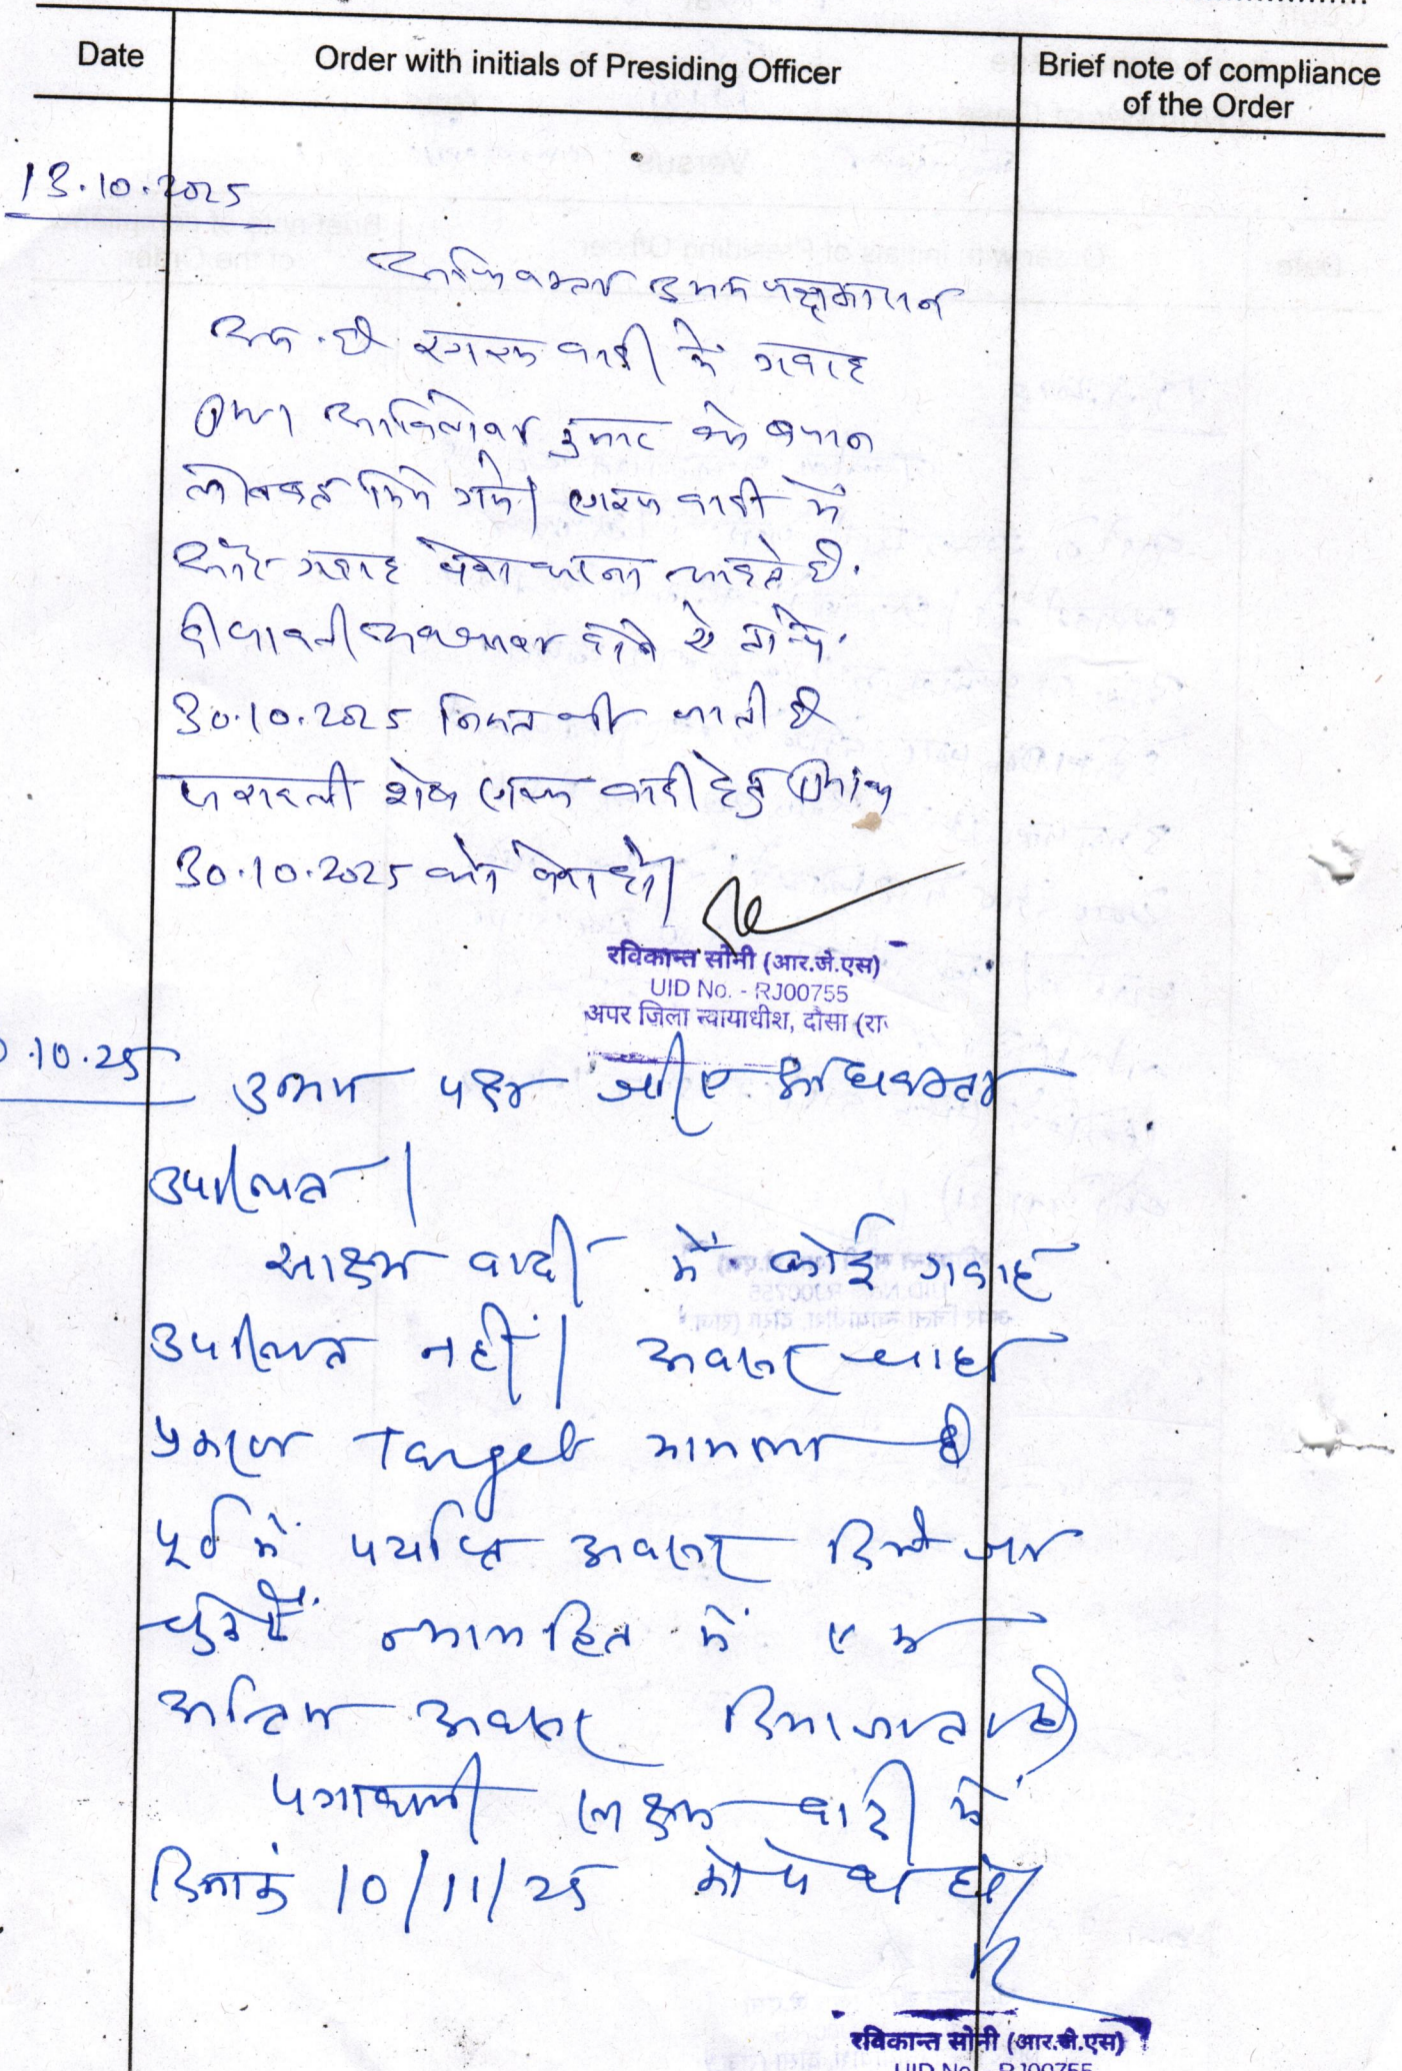 Date
Order with initials of Presiding Officer
Brief note of compliance
of the Order
13.10.2025
अधिवक्ता उभय पक्षकारान
उप. है साक्ष्य वादी के गवाह
कुमार के बयान
लेखबद्ध किये गये। साक्ष्य वादी में
और गवाह पेश करना चाहते है.
दीपावली अवकाश होने से
30.10.2025 नियत की जाती है
पत्रावली शेष साक्ष्य वादी हेतु दिनांक
30.10.2025 को पेश हो।
रविकान्त सोनी (आर.जे.एस)
UID No. - RJ00755
अपर जिला न्यायाधीश, दौसा (रा
.10.25
उभय पक्ष जरिए अधिवक्ता
उपस्थित।
साक्ष्य वादी में कोई गवाह
उपस्थित नहीं। अवसर चाहा
प्रकरण Target मामला है
पूर्व में पर्याप्त अवसर दिये जा
चुके हैं न्यायहित में एक
अन्तिम अवसर दिया जाता है।
पत्रावली साक्ष्य वादी में
दिनांक 10/11/25 को पेश हो।
रविकान्त सोनी (आर.जे.एस)
UID No. RJ00755